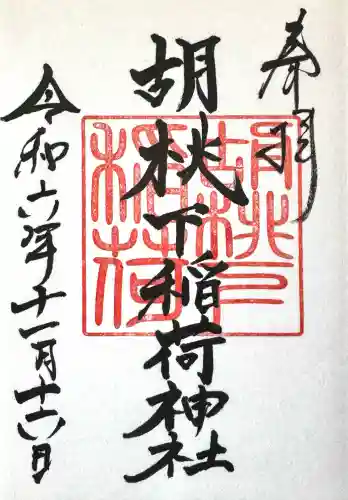 奉拝
胡桃下稲荷神社
胡桃下稲荷
令和六年十一月十六日